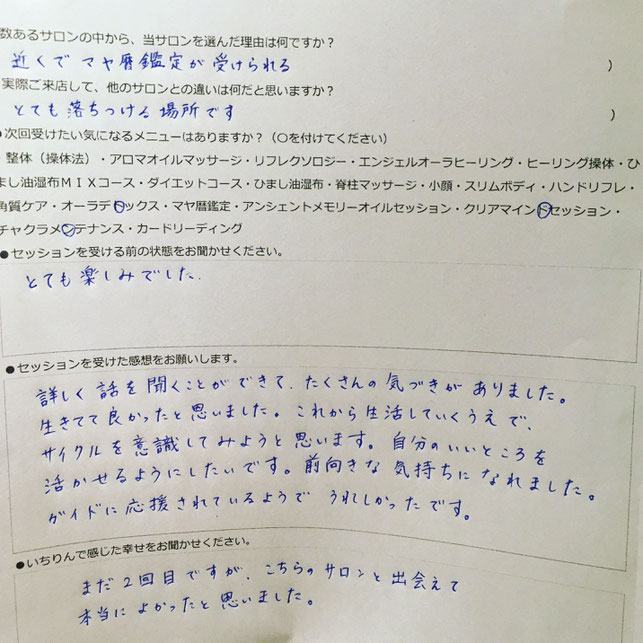 数あるサロンの中から、当サロンを選んだ理由は何ですか?
近くでマヤ暦鑑定が受けられる )
実際ご来店して、他のサロンとの違いは何だと思いますか?
とても落ちつける場所です )
●次回受けたい気になるメニューはありますか?(〇を付けてください)
・整体(操体法)・アロマオイルマッサージ・リフレクソロジー・エンジェルオーラヒーリング・ヒーリング操体・ひ
まし油湿布MIXコース・ダイエットコース・ひまし油湿布・脊柱マッサージ・小顔・スリムボディ・ハンドリフレ・
角質ケア・オーラデトックス・マヤ暦鑑定・アンシェントメモリーオイルセッション・クリアマインドセッション・
チャクラメンテナンス・カードリーディング
●セッションを受ける前の状態をお聞かせください。
とても楽しみでした.
●セッションを受けた感想をお願いします。
詳しく話を聞くことができて、たくさんの気づきがありました。
生きてて良かったと思いました。これから生活していくうえで、
サイクルを意識してみようと思います。自分のいいところを
活かせるようにしたいです。前向きな気持ちになれました。
ガイドに応援されているようでうれしかったです。
●いちりんで感じた幸せをお聞かせください。
まだ2回目ですが、こちらのサロンと出会えて
本当によかったと思いました。